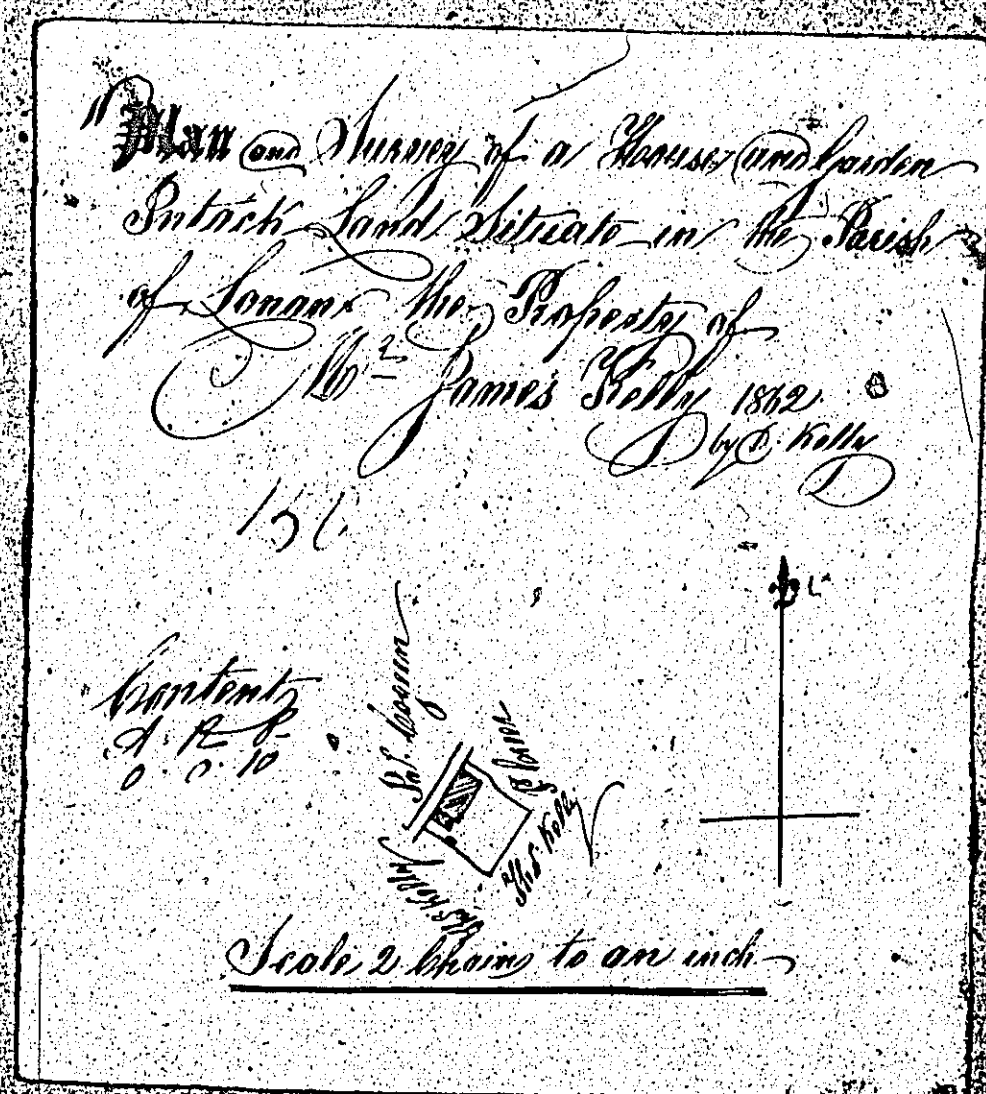 "Plan and Survey of a House and Garden
Intack Land Situate in the Parish
of Lonan the Property of
Mr James Kelly 1862
by D. Kelly
Content
A. R. P.
0. 0. 10
Thos. Kelly
Thos. Kelly
Scale 2 Chains to an inch